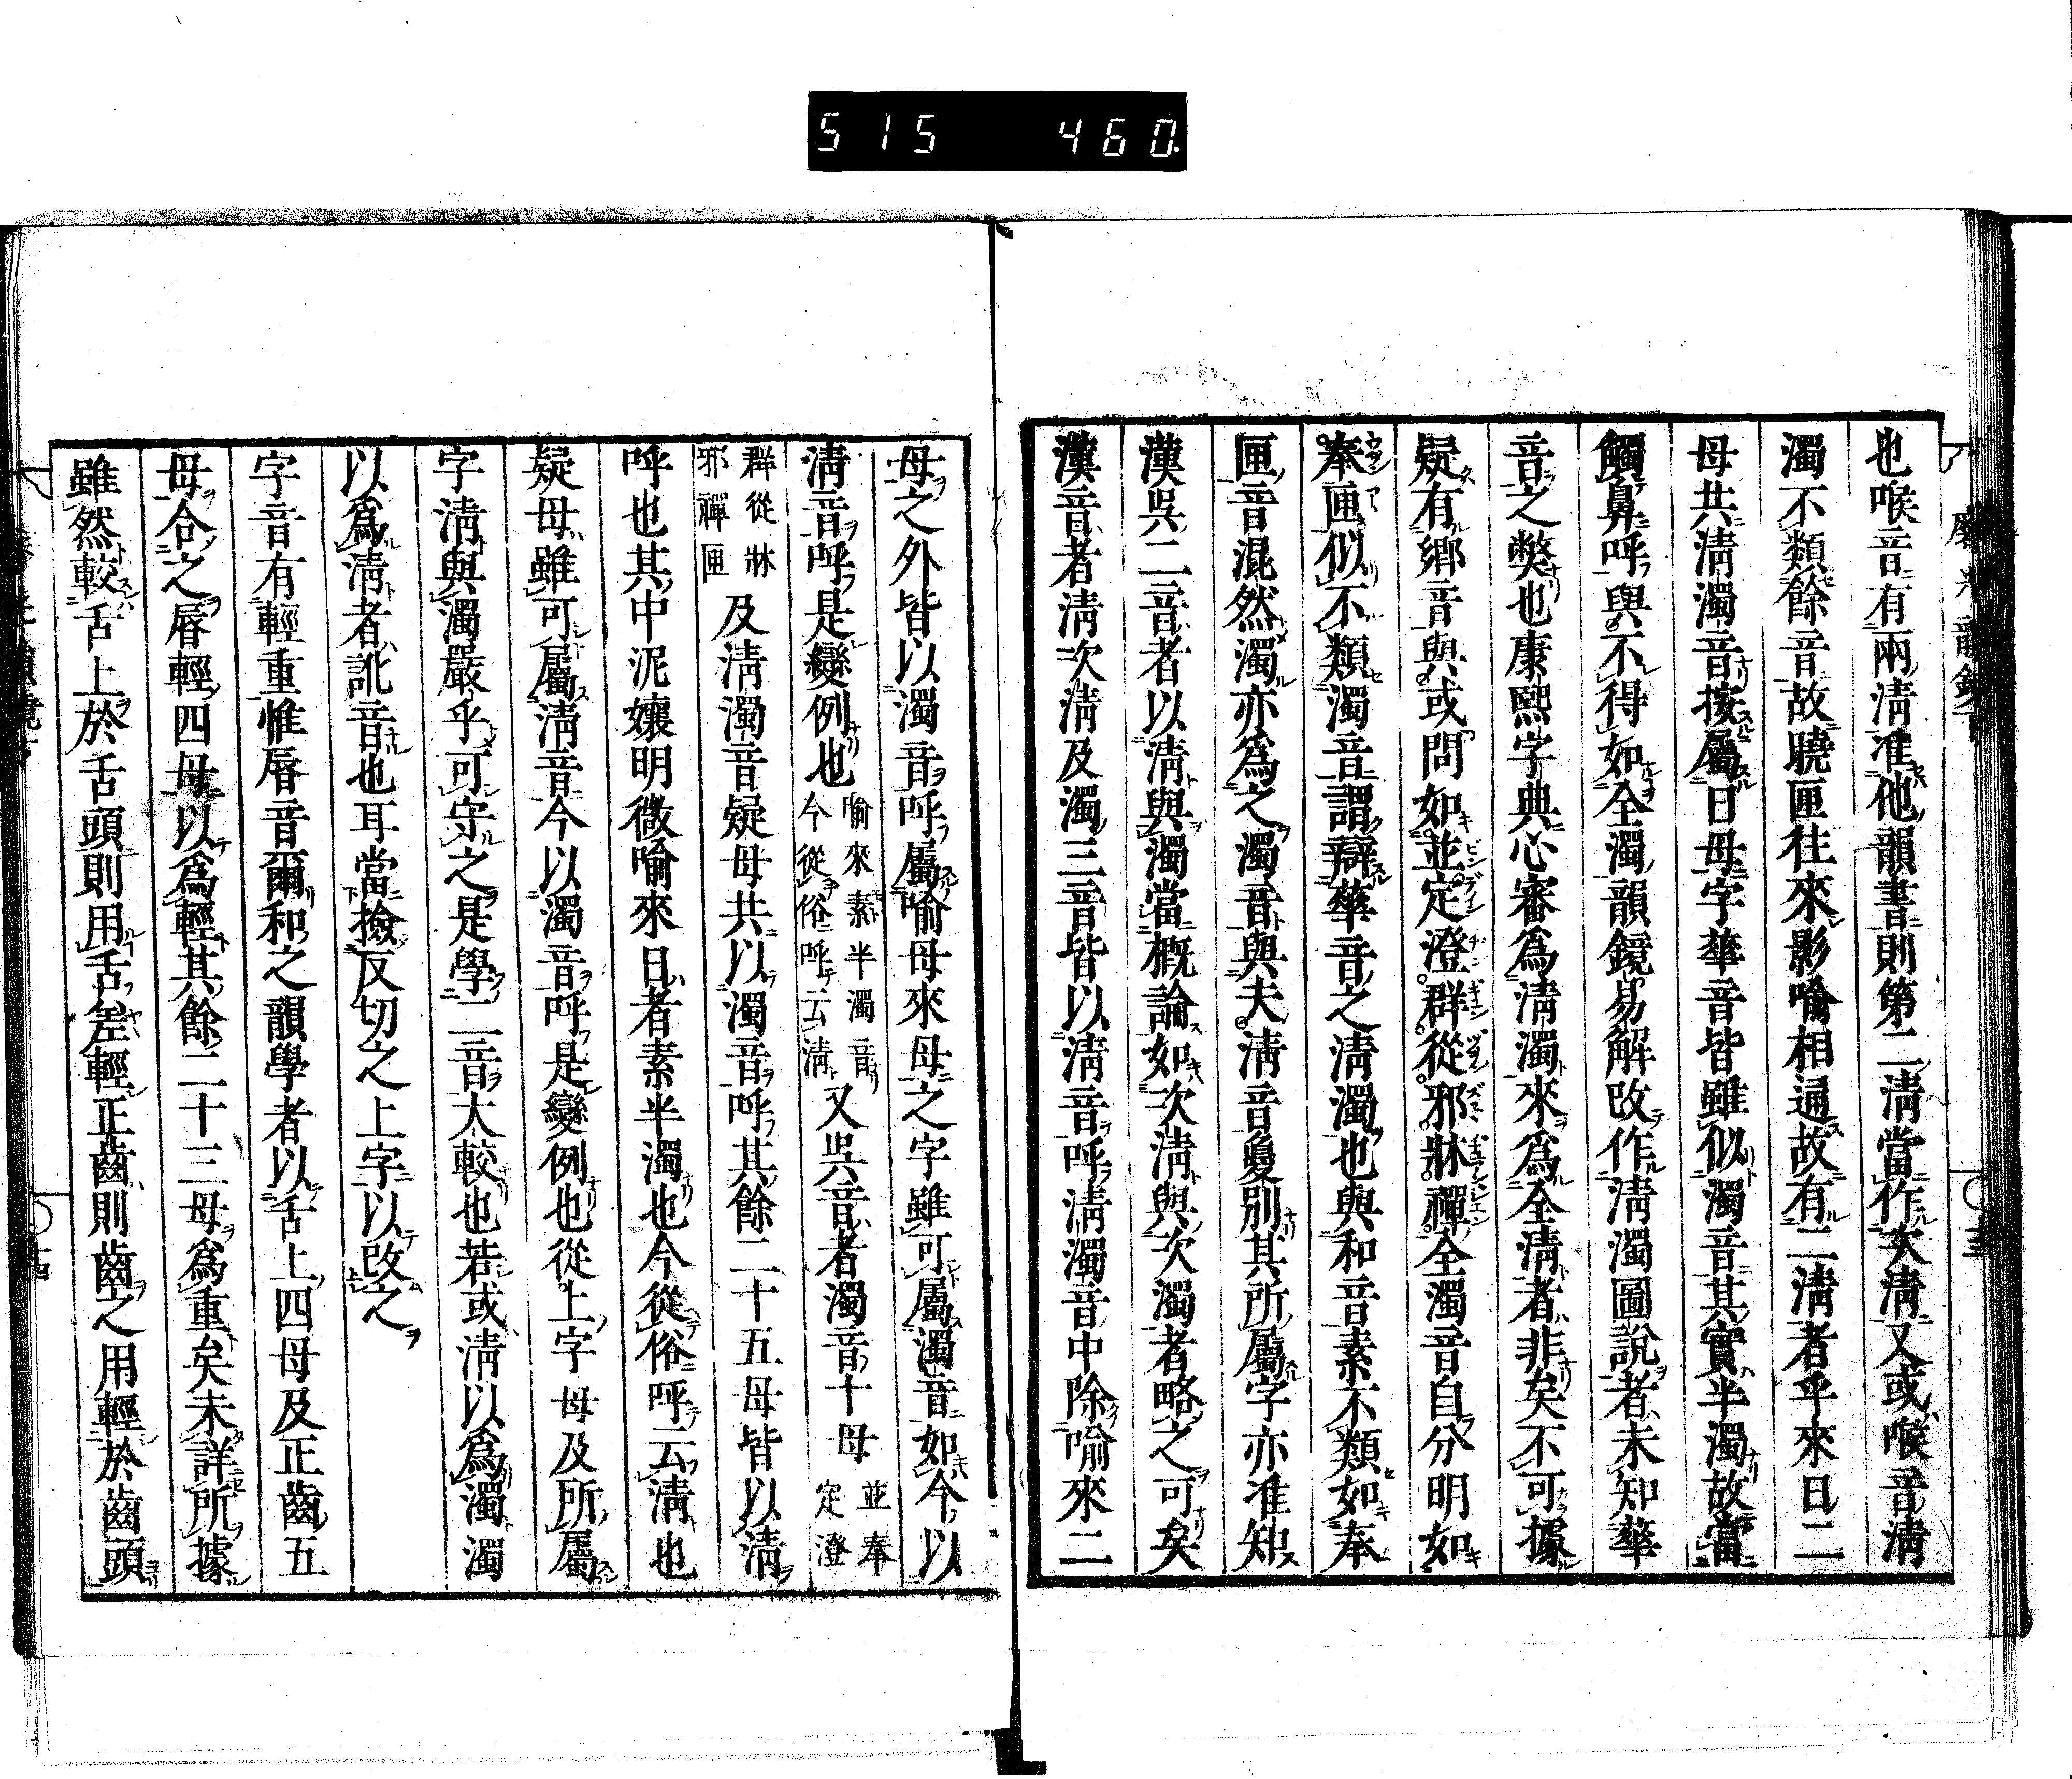 515 460
也喉音有兩清准他韻書則第二清當作次清又或喉音清
濁不類餘音故曉匣往來影喻相通故有二清者乎來日二
母共清濁音按屬日母字華音皆雖似濁音其實半濁故當
觸鼻呼與不得如全濁韻鏡易解改作清濁圖說者未知華
音之弊也康熙字典心審為清濁來為全清者非矣不可據
疑有鄉音與或問如並定澄群從邪牀禪全濁音自分明如
奉匣似不類濁音謂辯華音之清濁也與和音素不類如奉
匣音混然濁亦為之濁音與夫清音敻別其所屬字亦准知
漢吳二音者以清與濁當概論如次清與次濁者略之可矣
漢音者清次清及濁三音皆以清音呼清濁音中除喻來二
母之外皆以濁音呼屬喻母來母之字雖可屬濁音如今以
清音呼是變例也喻來素半濁音今從俗呼云清又吳音者濁音十母並奉定澄
群從牀邪禪匣及清濁音疑母共以濁音呼其餘二十五母皆以清
呼也其中泥孃明微喻來日者素半濁也今從俗呼云清也
疑母雖可屬清音今以濁音呼是變例也從上字母及所屬
字清與濁嚴乎可守之是學二音大較也若或清以為濁濁
以為清者訛音也耳當撿反切之上字以改之
字音有輕重惟脣音爾和之韻學者以舌上四母及正齒五
母合之脣輕四母以為輕其餘二十三母為重矣未詳所據
雖然較舌上於舌頭則用舌差輕正齒則齒之用輕於齒頭